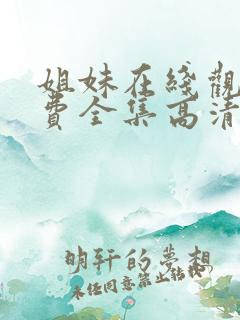 姐妹在綫觀
費全集高清
明轩的夢想
未任同意禁止転載